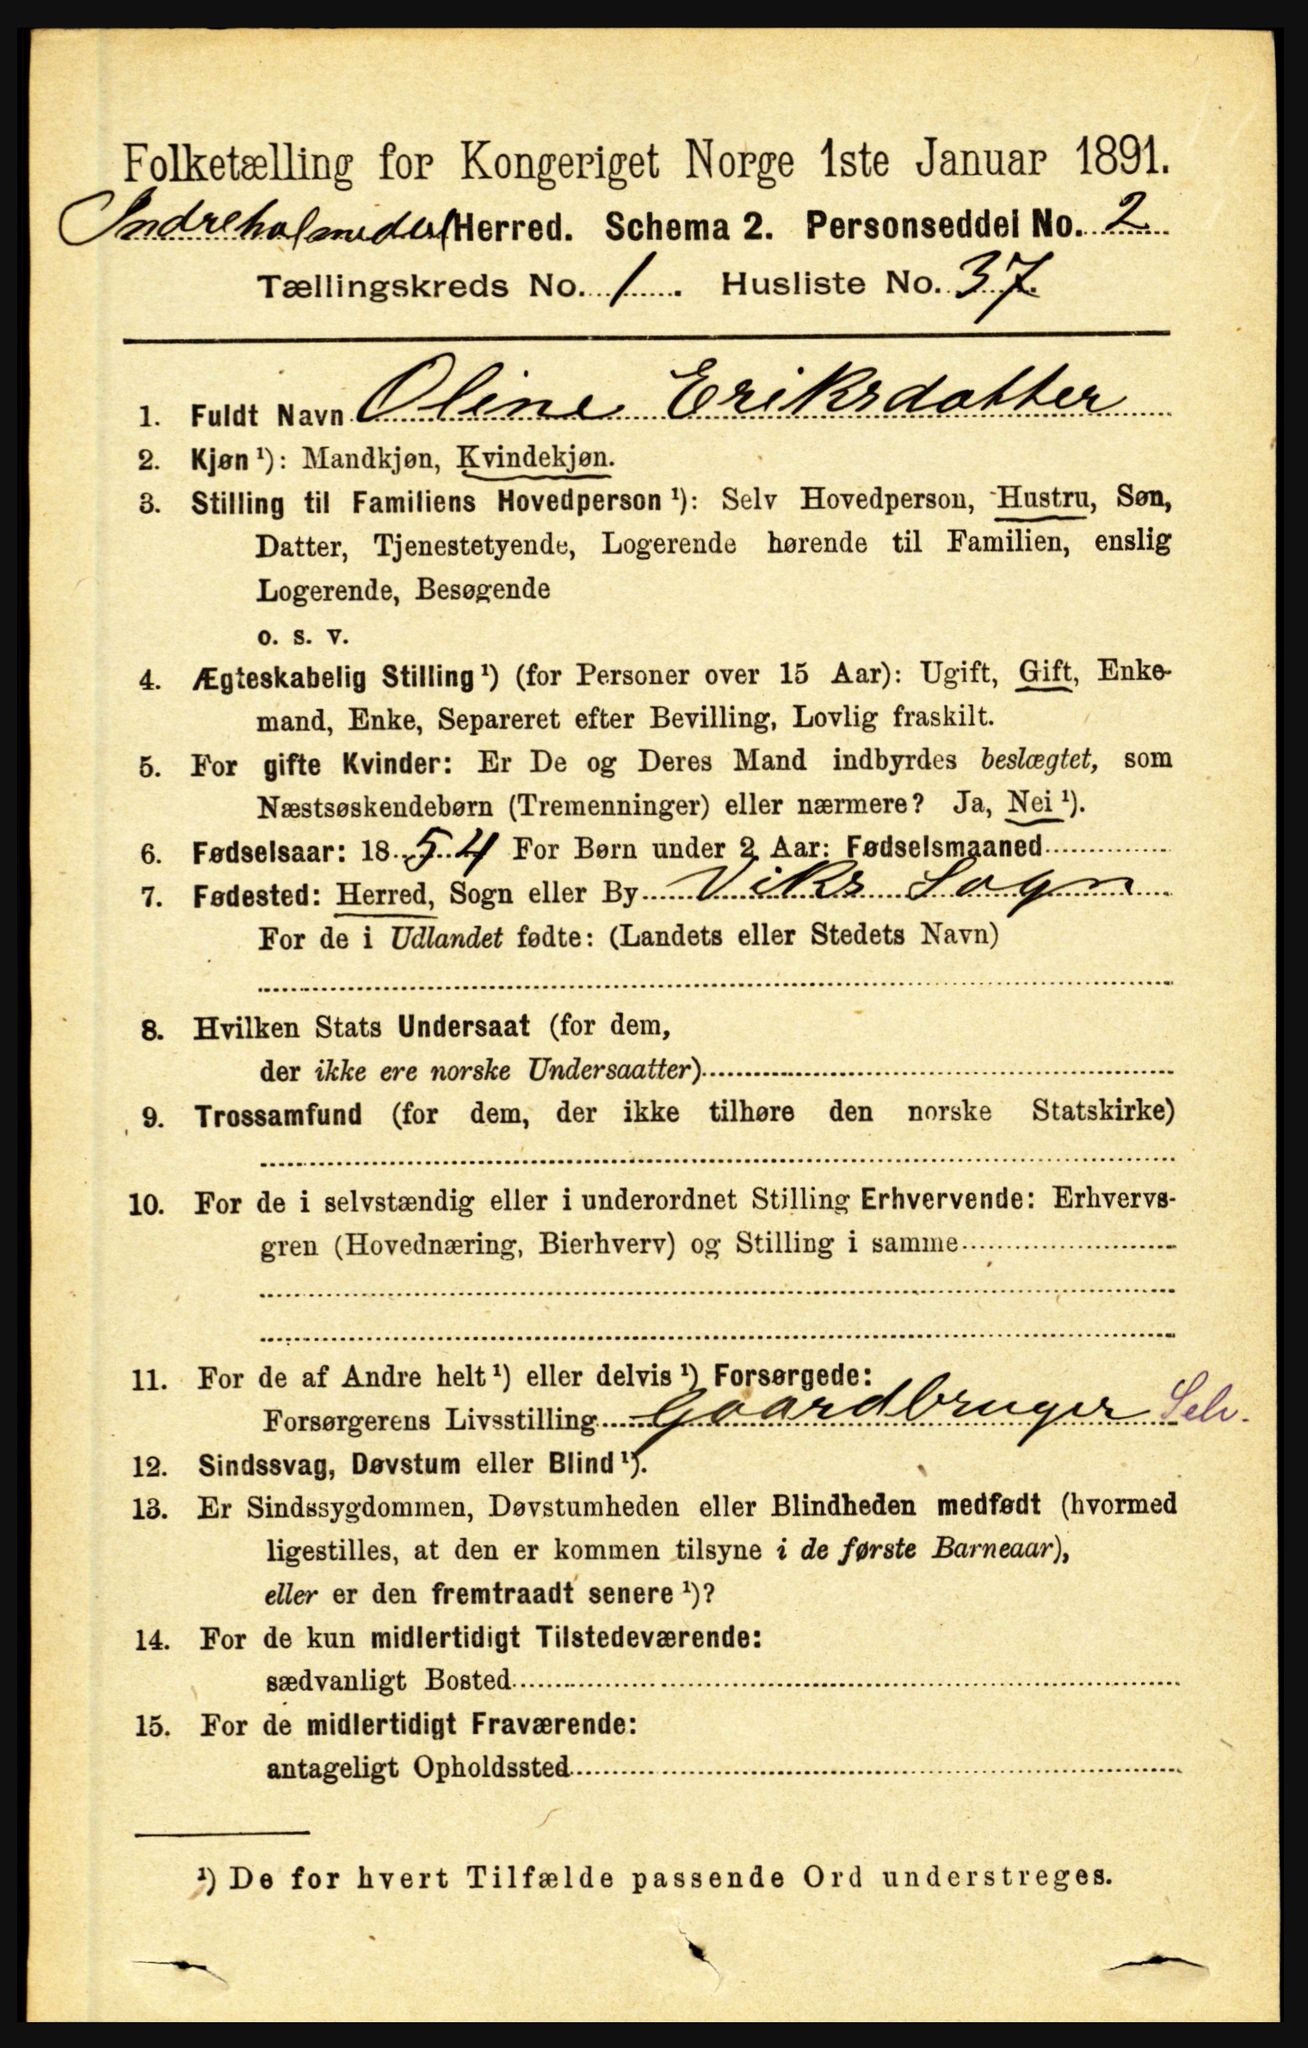 Folketælling for Kongeriget Norge 1ste Januar 1891.
Indreholmedal Herred. Schema 2. Personseddel No. 2
Tællingskreds No. 1. Husliste No. 37.
1. Fuldt Navn Oline Eriksdatter
2. Kjøn ¹): Mandkjøn, Kvindekjøn.
3. Stilling til Familiens Hovedperson ¹): Selv Hovedperson, Hustru, Søn,
Datter, Tjenestetyende, Logerende hørende til Familien, enslig
Logerende, Besøgende
o. s. v.
4. Ægteskabelig Stilling ¹) (for Personer over 15 Aar): Ugift, Gift, Enke-
mand, Enke, Separeret efter Bevilling, Lovlig fraskilt.
5. For gifte Kvinder: Er De og Deres Mand indbyrdes beslægtet, som
Næstsøskendebørn (Tremenninger) eller nærmere? Ja, Nei ¹).
6. Fødselsaar: 1854 For Børn under 2 Aar: Fødselsmaaned
7. Fødested: Herred, Sogn eller By Viks Sogn
For de i Udlandet fødte: (Landets eller Stedets Navn)
8. Hvilken Stats Undersaat (for dem,
der ikke ere norske Undersaatter)
9. Trossamfund (for dem, der ikke tilhøre den norske Statskirke)
10. For de i selvstændig eller i underordnet Stilling Erhvervende: Erhvervs-
gren (Hovednæring, Bierhverv) og Stilling i samme
11. For de af Andre helt ¹) eller delvis ¹) Forsørgede:
Forsørgerens Livsstilling Gaardbruger Selv.
12. Sindssvag, Døvstum eller Blind ¹).
13. Er Sindssygdommen, Døvstumheden eller Blindheden medfødt (hvormed
ligestilles, at den er kommen tilsyne i de første Barneaar),
eller er den fremtraadt senere ¹)?
14. For de kun midlertidigt Tilstedeværende:
sædvanligt Bosted
15. For de midlertidigt Fraværende:
antageligt Opholdssted
¹) De for hvert Tilfælde passende Ord understreges.